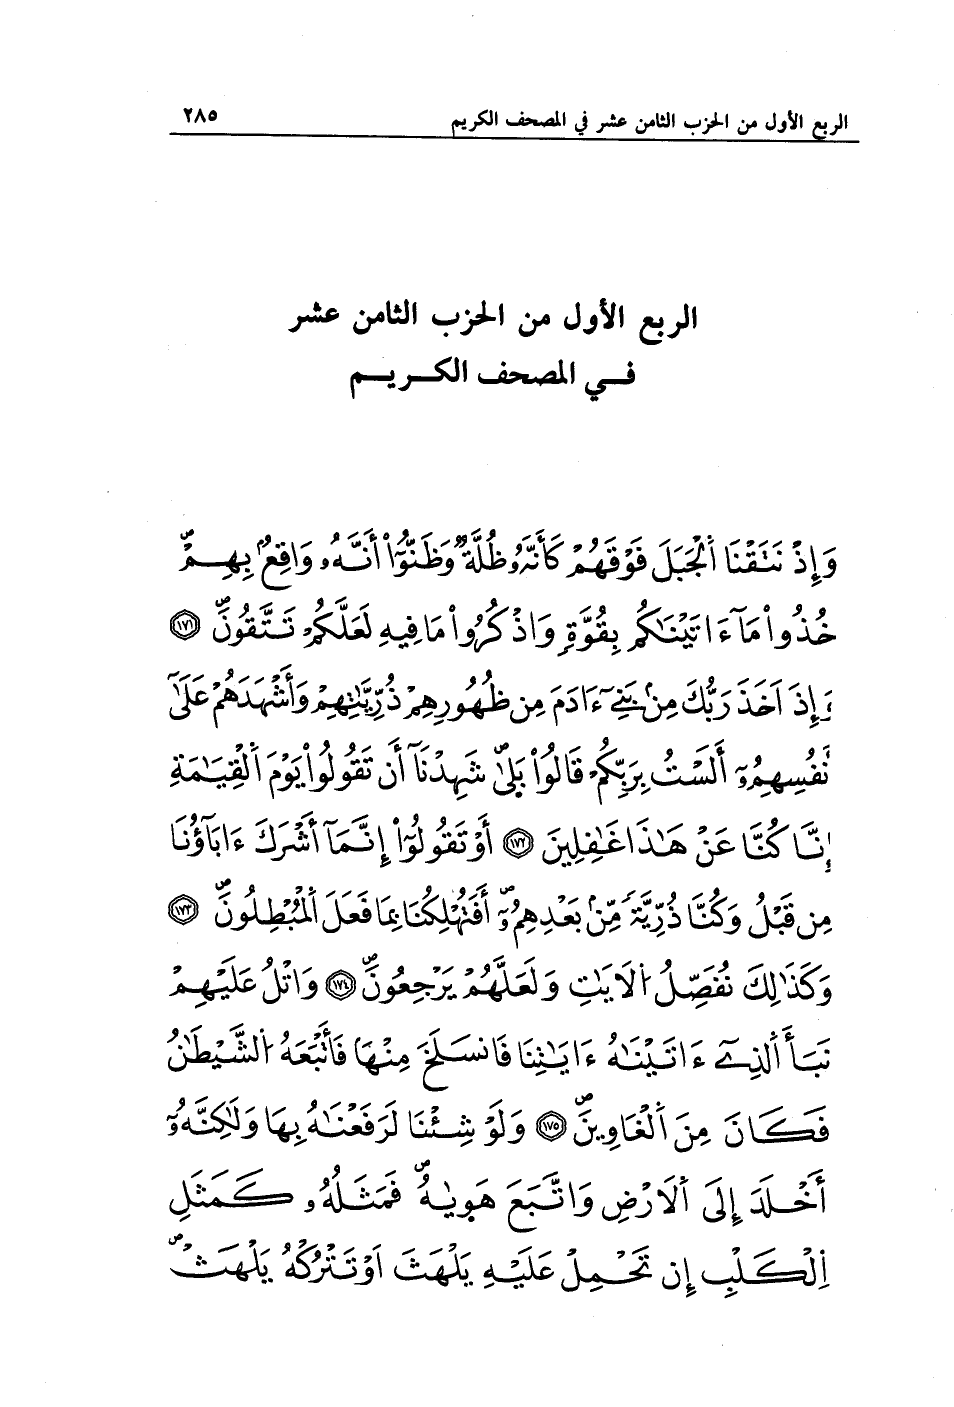 الربع الأول من الحزب الثامن عشر في المصحف الكريم ٢٨٥
الربع الأول من الحزب الثامن عشر
فـي المصحف الكـريـم
وَإِذْ نَتَقْنَا اَ۬لْجَبَلَ فَوْقَهُمْ كَأَنَّهُۥ ظُلَّةٌ وَظَنُّوٓاْ أَنَّهُۥ وَاقِعُۢ بِهِمْۖ
خُذُواْ مَآ ءَاتَيْنَٰكُم بِقُوَّةٍ وَاذْكُرُواْ مَا فِيهِ لَعَلَّكُمْ تَتَّقُونَۖ ۝١٧١
وَإِذَ اَخَذَ رَبُّكَ مِنۢ بَنِےٓ ءَادَمَ مِن ظُهُورِهِمْ ذُرِّيَّٰتِهِمْ وَأَشْهَدَهُمْ عَلَىٰٓ
نفُسِهِمُۥٓ أَلَسْتُ بِرَبِّكُمْ قَالُواْ بَلَىٰۖ شَهِدْنَآ أَن تَقُولُواْ يَوْمَ اَ۬لْقِيَٰمَةِ
إِنَّا كُنَّا عَنْ هَٰذَا غَٰفِلِينَ ۝١٧٢ أَوْ تَقُولُوٓاْ إِنَّمَآ أَشْرَكَ ءَابَآؤُنَا
مِن قَبْلُ وَكُنَّا ذُرِّيَّةً مِّنۢ بَعْدِهِمُۥٓۖ أَفَتُهْلِكُنَا بِمَا فَعَلَ اَ۬لْمُبْطِلُونَۖ ۝١٧٣
وَكَذَٰلِكَ نُفَصِّلُ اُ۬لَايَٰتِ وَلَعَلَّهُمْ يَرْجِعُونَۖ ۝١٧٤ وَاتْلُ عَلَيْهِمْ
نَبَأَ اَ۬لذِےٓ ءَاتَيْنَٰهُ ءَايَٰتِنَا فَانسَلَخَ مِنْهَا فَأَتْبَعَهُ اُ۬لشَّيْطَٰنُ
فَكَانَ مِنَ اَ۬لْغَاوِينَۖ ۝١٧٥ وَلَوْ شِئْنَا لَرَفَعْنَٰهُ بِهَا وَلَٰكِنَّهُۥٓ
أَخْلَدَ إِلَى اَ۬لَارْضِ وَاتَّبَعَ هَوِيٰهُۖ فَمَثَلُهُۥ كَمَثَلِ
اِ۬لْكَلْبِ إِن تَحْمِلْ عَلَيْهِ يَلْهَثَ اَوْ تَتْرُكْهُ يَلْهَثْۖ